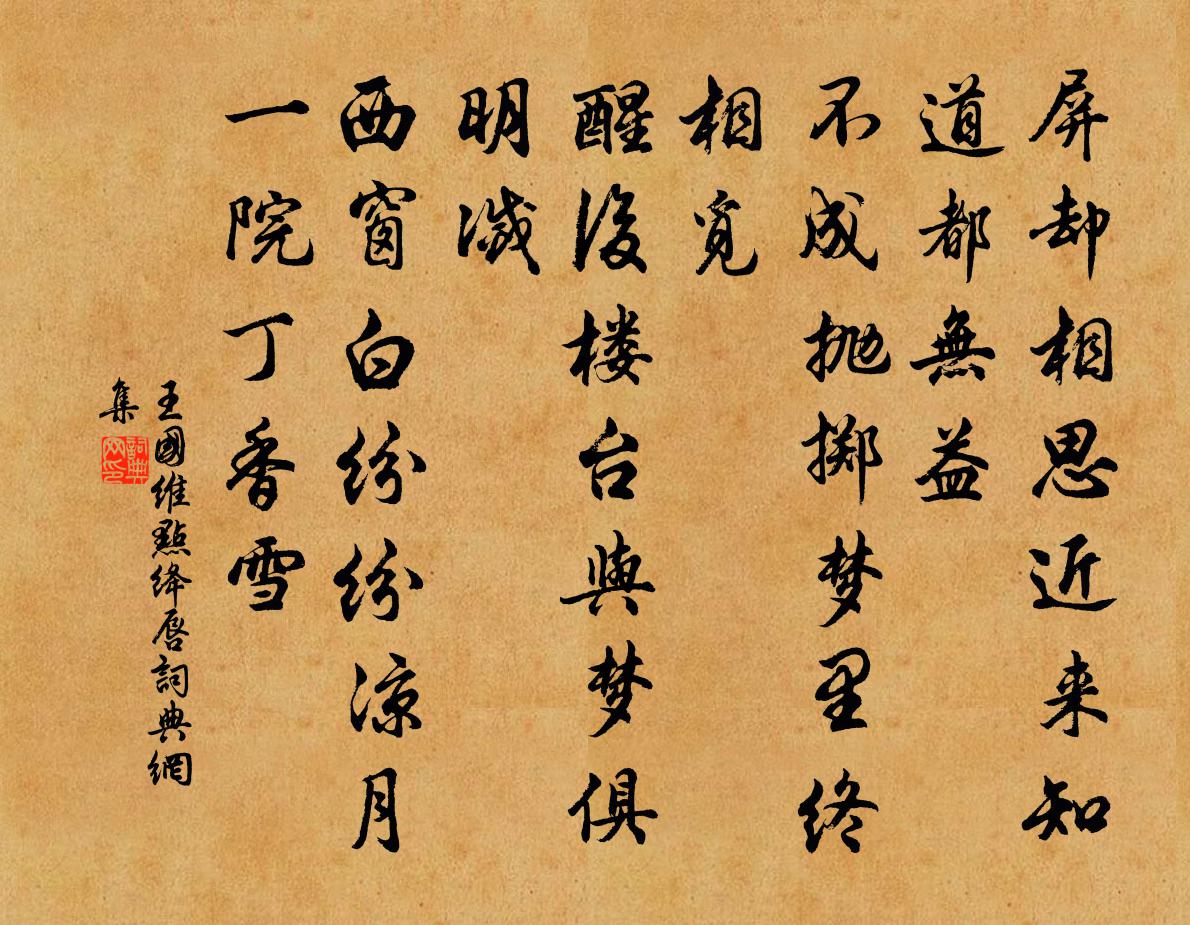 屏却相思近来知
道都無益
不成抛掷梦里终
相覓
醒後楼台與梦俱
明滅
西窗白纷纷凉月
一院丁香雪
王國維點绛唇詞典網
集
詞典網印